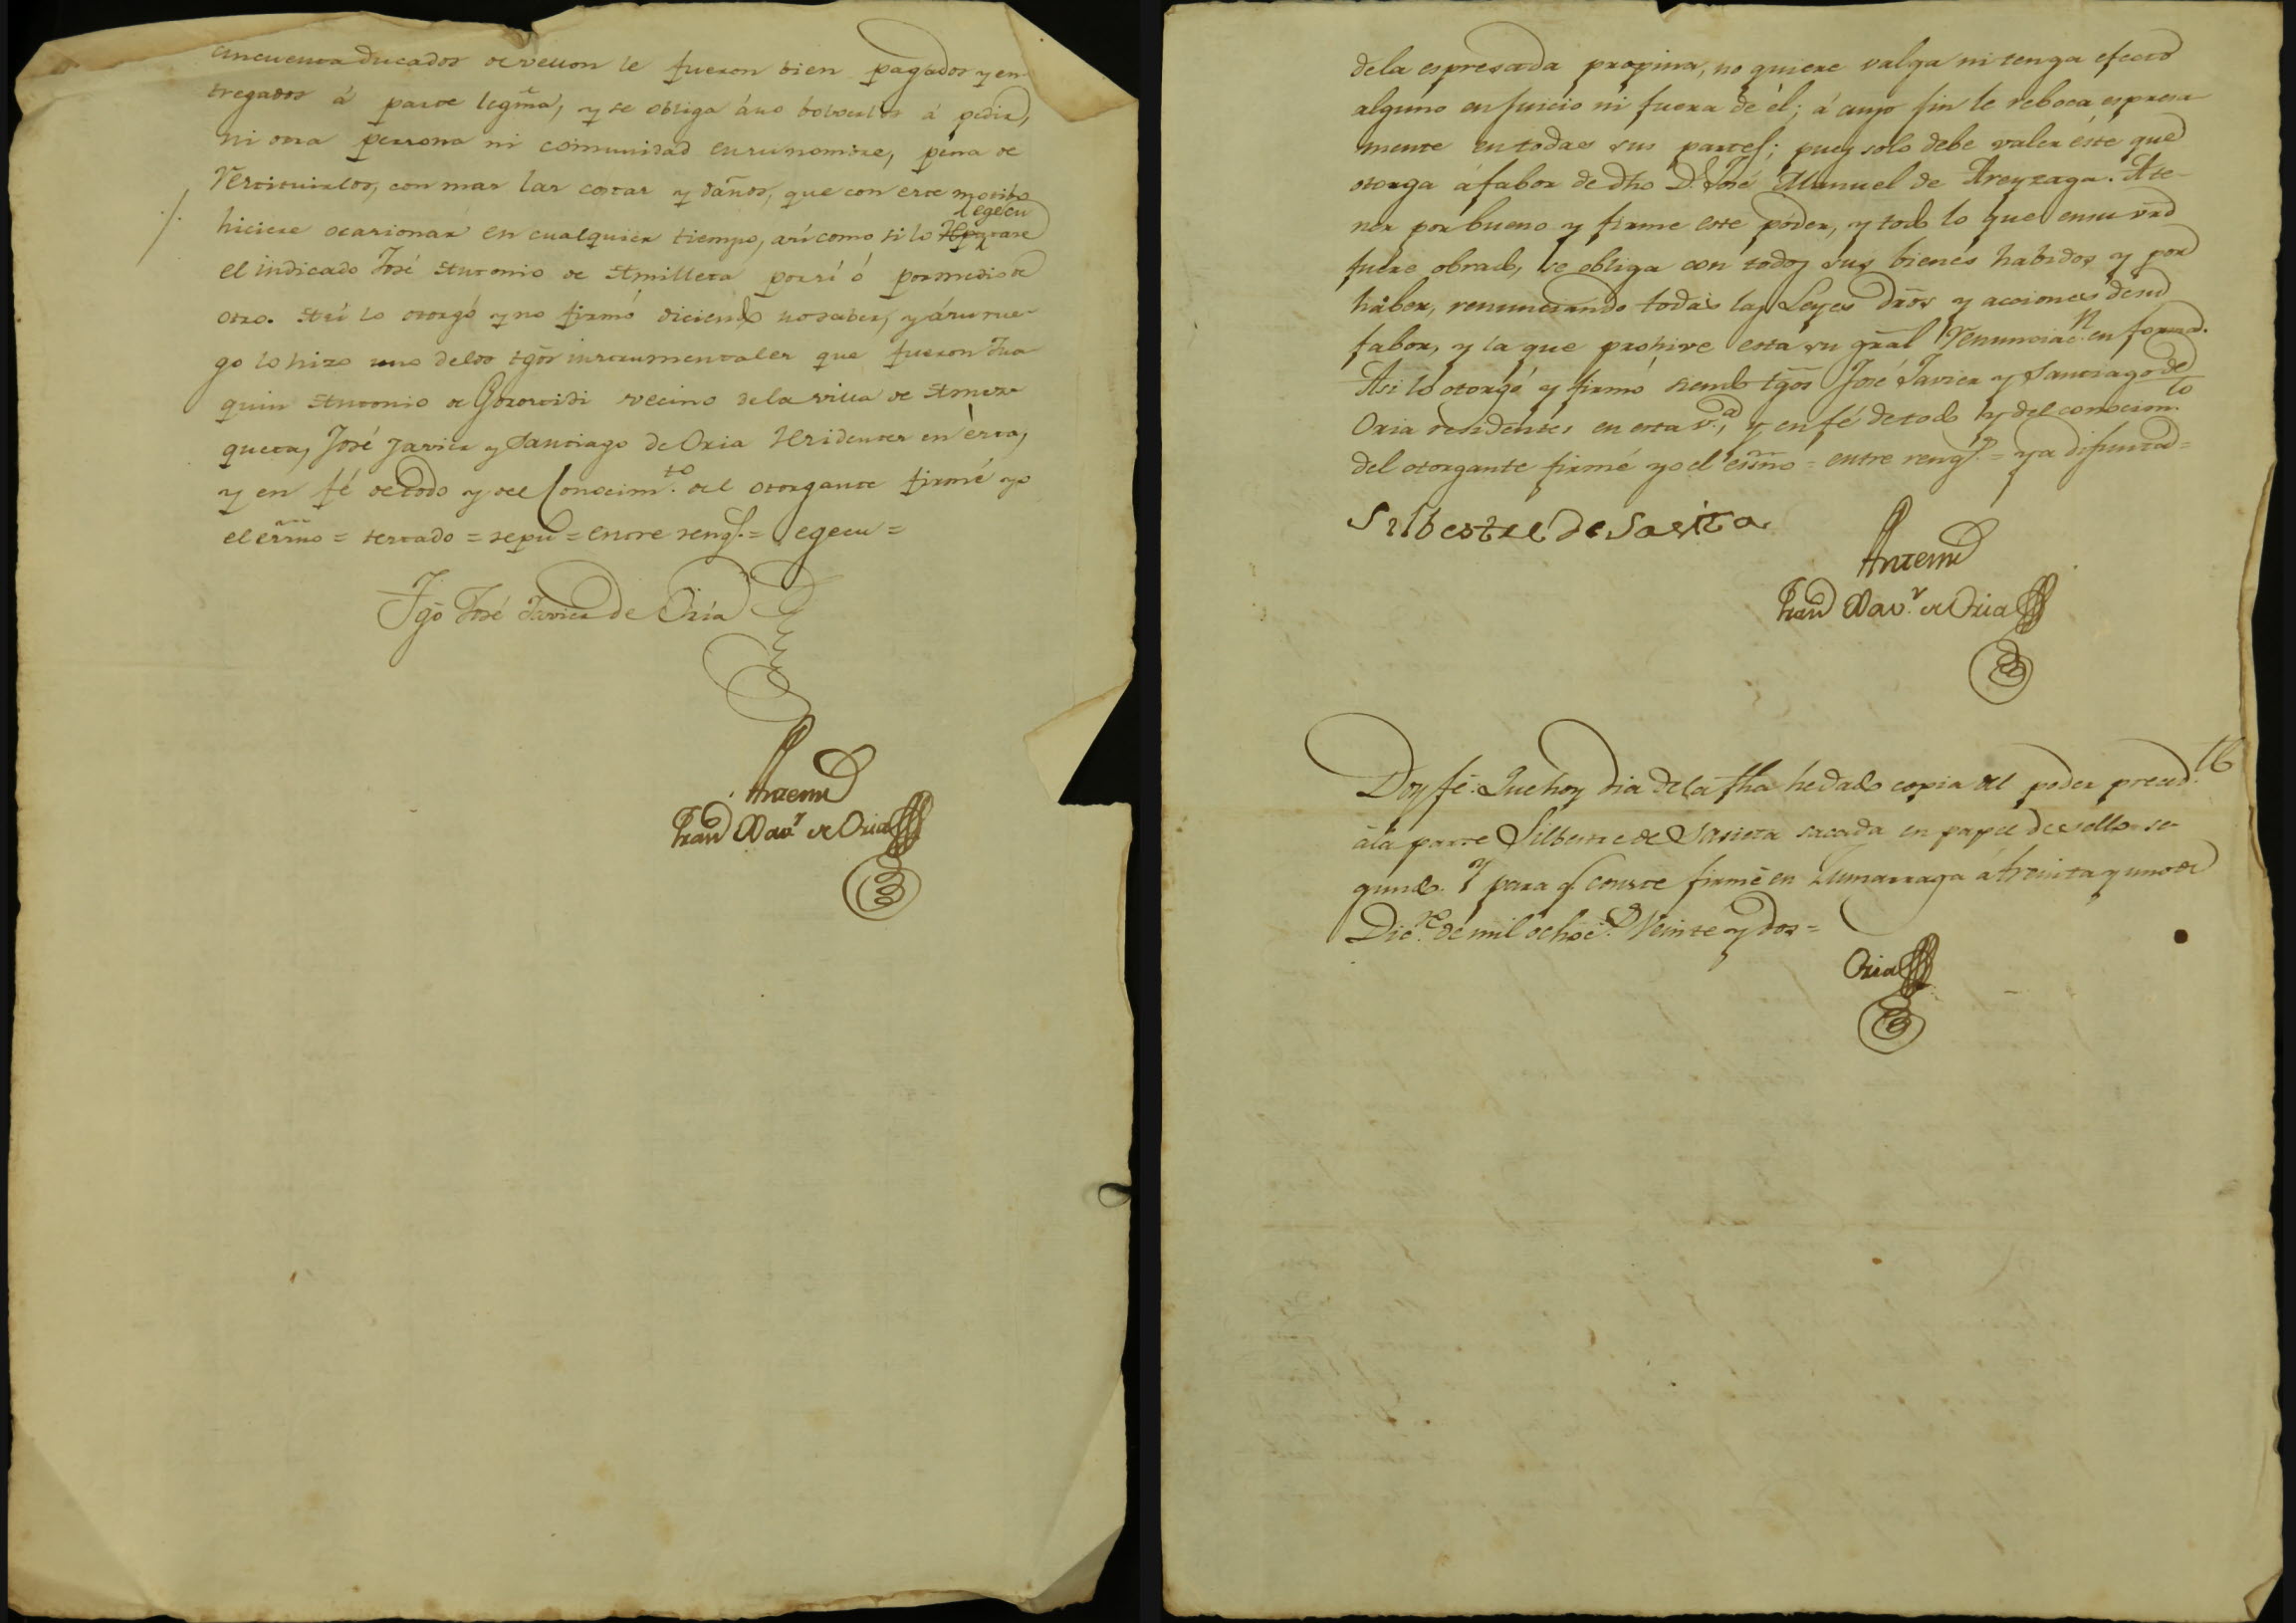 cincuenta ducados de vellon le fueron bien pagados y en
tregados á parte legma, y se obliga áno bolverlos á pedir,
ni otra persona ni comunidad en su nombre, pena de
restituirlos, con mas las costas y daños, que con este motibo
hiciere ocasionar en cualquier tiempo, así como si lo egecu
tase
el indicado José Antonio de Amilleta por sí ó por medio de
otro. Así lo otorgó y no firmó diciendo no saber, y á su rue-
go lo hizo uno de los tgos instrumentales que fueron Jua
quin Antonio de Gorostidi vecino de la villa de Amez-
queta, José Javier y Santiago de Oria residentes en ésta,
y en fé de todo y del conocimto. del otorgante firmé yo
el essno = testado = sepu = entre rengs. = egecu =
Tgo José Javier de Oria
Antemi
Fran Xavr. de Oria
de la espresada propina, no quiere valga ni tenga efecto
alguno en juicio ni fuera de él; á cuyo fin le reboca espresa
mente en todas sus partes; pues solo debe valer éste que
otorga á fabor de dho D. José Manuel de Areyzaga. A te-
ner por bueno y firme este poder, y todo lo que en su vrd
fuere obrado, se obliga con todos sus bienes habidos y por
haber, renunciando todas las Leyes dros y acciones de su
fabor, y la que prohive esta su gral renunciacn. en forma.
Asi lo otorgó y firmó siendo tgos José Javier y Santiago de
Oria residentes en esta va., y en fé de todo y del conocimto
del otorgante firmé yo el essno = entre rengs. = ya difunta =
Silbestre de Sarita
Antemi
Fran Xavr. de Oria
16
Doy fé: Que hoy dia de la fha he dado copia del poder preced.
á la parte Silbestre de Sarieta sacada en papel de sello se-
gundo. Y para q. conste firmé en Zumarraga á treinta y uno de
Dice. de mil ochoc.s veinte y dos =
Oria